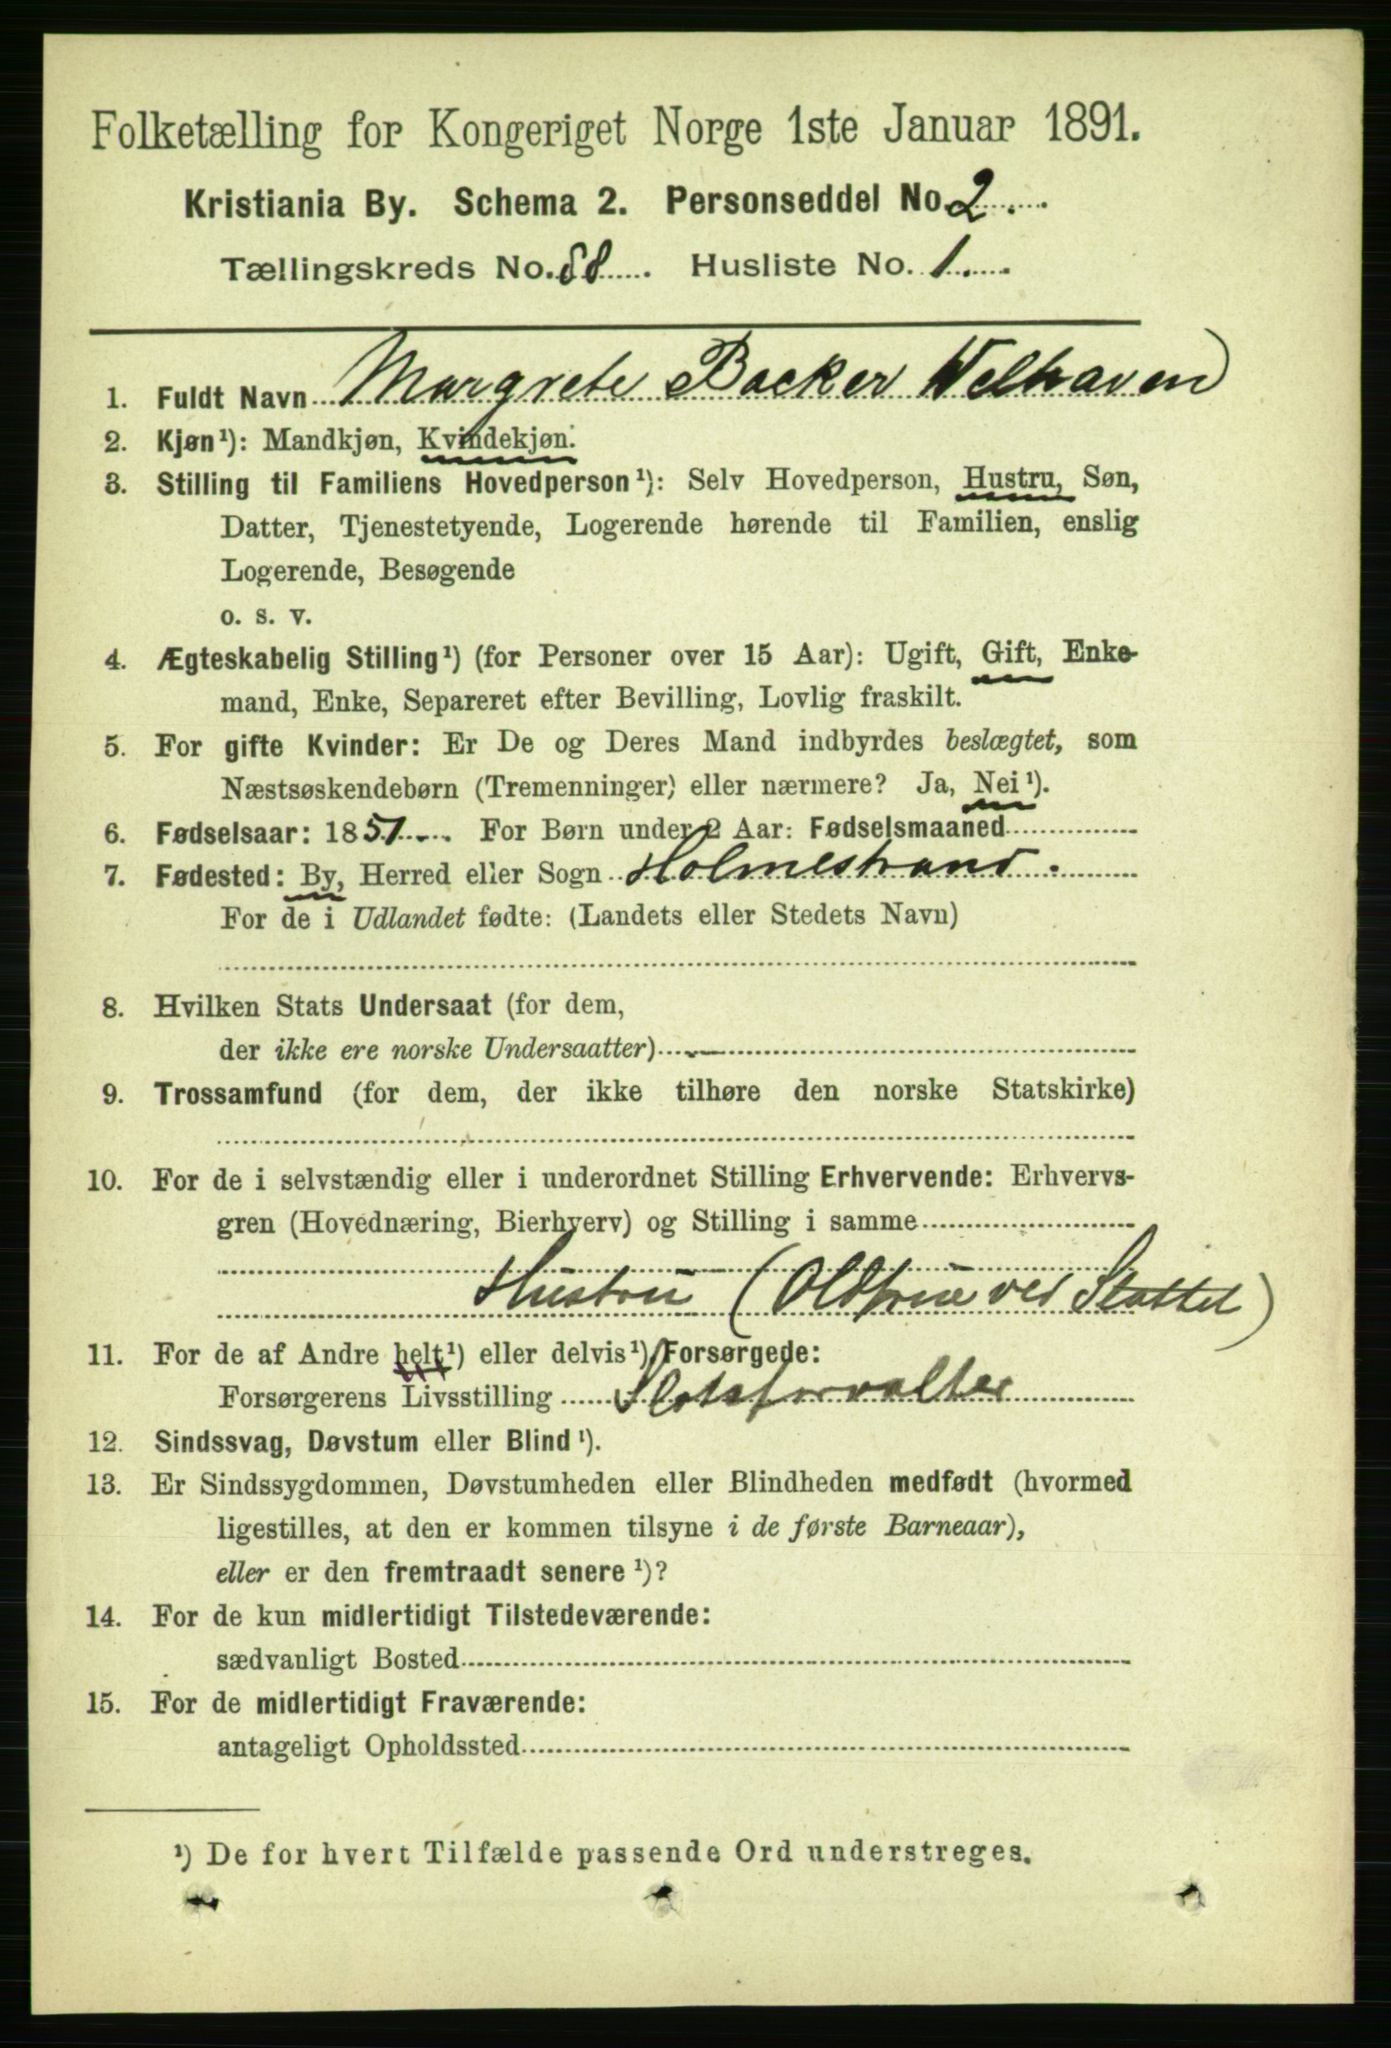 Folketælling for Kongeriget Norge 1ste Januar 1891.
Kristiania By. Schema 2. Personseddel No. 2.
Tællingskreds No. 88. Husliste No. 1.
1. Fuldt Navn Margrete Backer Welhaven
2. Kjøn¹): Mandkjøn, Kvindekjøn.
3. Stilling til Familiens Hovedperson¹): Selv Hovedperson, Hustru, Søn,
Datter, Tjenestetyende, Logerende hørende til Familien, enslig
Logerende, Besøgende
o. s. v.
4. Ægteskabelig Stilling¹) (for Personer over 15 Aar): Ugift, Gift, Enke-
mand, Enke, Separeret efter Bevilling, Lovlig fraskilt.
5. For gifte Kvinder: Er De og Deres Mand indbyrdes beslægtet, som
Næstsøskendebørn (Tremenninger) eller nærmere? Ja, Nei¹).
6. Fødselsaar: 1851. For Børn under 2 Aar: Fødselsmaaned
7. Fødested: By, Herred eller Sogn Holmestrand.
For de i Udlandet fødte: (Landets eller Stedets Navn)
8. Hvilken Stats Undersaat (for dem,
der ikke ere norske Undersaatter)
9. Trossamfund (for dem, der ikke tilhøre den norske Statskirke)
10. For de i selvstændig eller i underordnet Stilling Erhvervende: Erhvervs-
gren (Hovednæring, Bierhverv) og Stilling i samme
Hustru (Oldfrue ved Slottet)
11. For de af Andre helt¹) eller delvis¹) Forsørgede:
Forsørgerens Livsstilling Slotsforvalter
12. Sindssvag, Døvstum eller Blind¹).
13. Er Sindssygdommen, Døvstumheden eller Blindheden medfødt (hvormed
ligestilles, at den er kommen tilsyne i de første Barneaar),
eller er den fremtraadt senere¹)?
14. For de kun midlertidigt Tilstedeværende:
sædvanligt Bosted
15. For de midlertidigt Fraværende:
antageligt Opholdssted
¹) De for hvert Tilfælde passende Ord understreges.